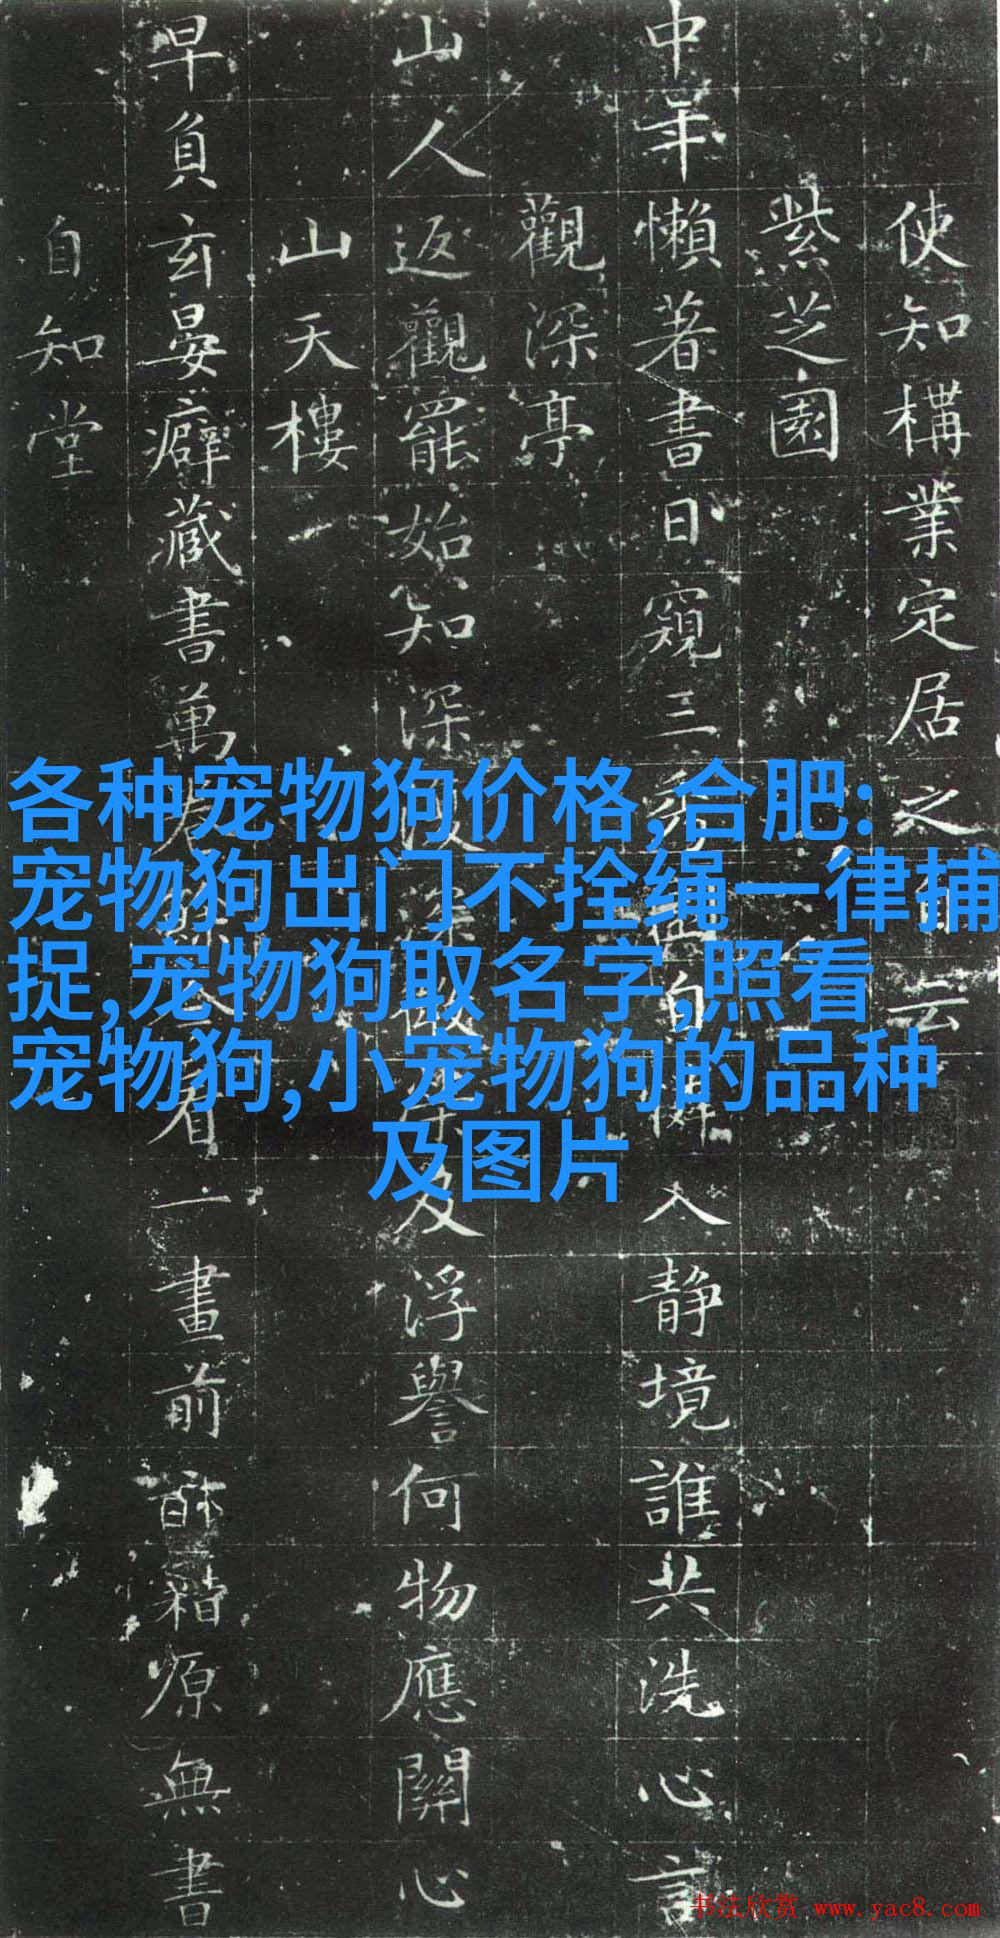 使知構業定居之云
紫芝園
中年懶著書日窺三自憐入静境誰共洗心言
觀深亭
山人返觀罷始知深深及浮譽何物應關心
山天樓
早負玄晏癖藏書萬卷看一畫前籍原無書
自知堂
各种宠物狗价格,合肥:
宠物狗出门不拴绳一律捕
捉,宠物狗取名字,照看
宠物狗,小宠物狗的品种
及图片
书法欣赏 www.yac8.com